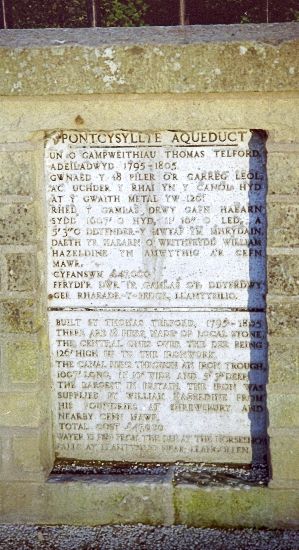 PONTCYSYLLTE AQUEDUCT
UN O GAMPWEITHIAU THOMAS TELFORD,
ADEILADWYD 1795-1805.
GWNAED Y 18 PILER O'R GARREG LEOL,
AC UCHDER Y RHAI YN Y CANOL HYD
AT Y GWAITH METAL YW 120'.
RHED Y GAMLAS DRWY GAFN HAEARN
SYDD 1007' O HYD, 11' 10" O LED, A
5'3" O DDYFNDER-Y MWYAF YM MHRYDAIN.
DAETH YR HAEARN O WEITHFEYDD WILLIAM
HAZELDINE YN AMWYTHIG A'R CEFN
MAWR.
CYFANSWM £47,000
FFRYDI'R DWR I'R GAMLAS O'R DDYFRDWY
GER RHAEADR-Y-BEDOL, LLANTYSILIO.
BUILT BY THOMAS TELFORD, 1795-1805
THERE ARE 18 PIERS, MADE OF LOCAL STONE,
THE CENTRAL ONES OVER THE DEE BEING
120' HIGH UP TO THE IRONWORK.
THE CANAL RUNS THROUGH AN IRON TROUGH,
1007' LONG, 11' 10" WIDE AND 5' 3" DEEP,
THE LARGEST IN BRITAIN. THE IRON WAS
SUPPLIED BY WILLIAM HAZELDINE FROM
HIS FOUNDRIES AT SHREWSBURY AND
NEARBY CEFN MAWR.
TOTAL COST £47,000
WATER IS FED FROM THE DEE AT THE HORSESHOE
FALLS AT LLANTYSILIO NEAR LLANGOLLEN.